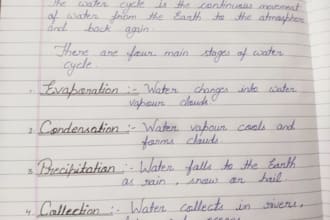 the water cycle is the continuous movement
of water from the Earth to the atmosphere
and back again.
There are four main stages of water
cycle.
1. Evaporation :- Water changes into water
vapour clouds.
2. Condensation :- Water vapour cools and
forms clouds
3. Precipitation :- Water falls to the Earth
as rain, snow or hail
4. Collection :- Water collects in rivers,